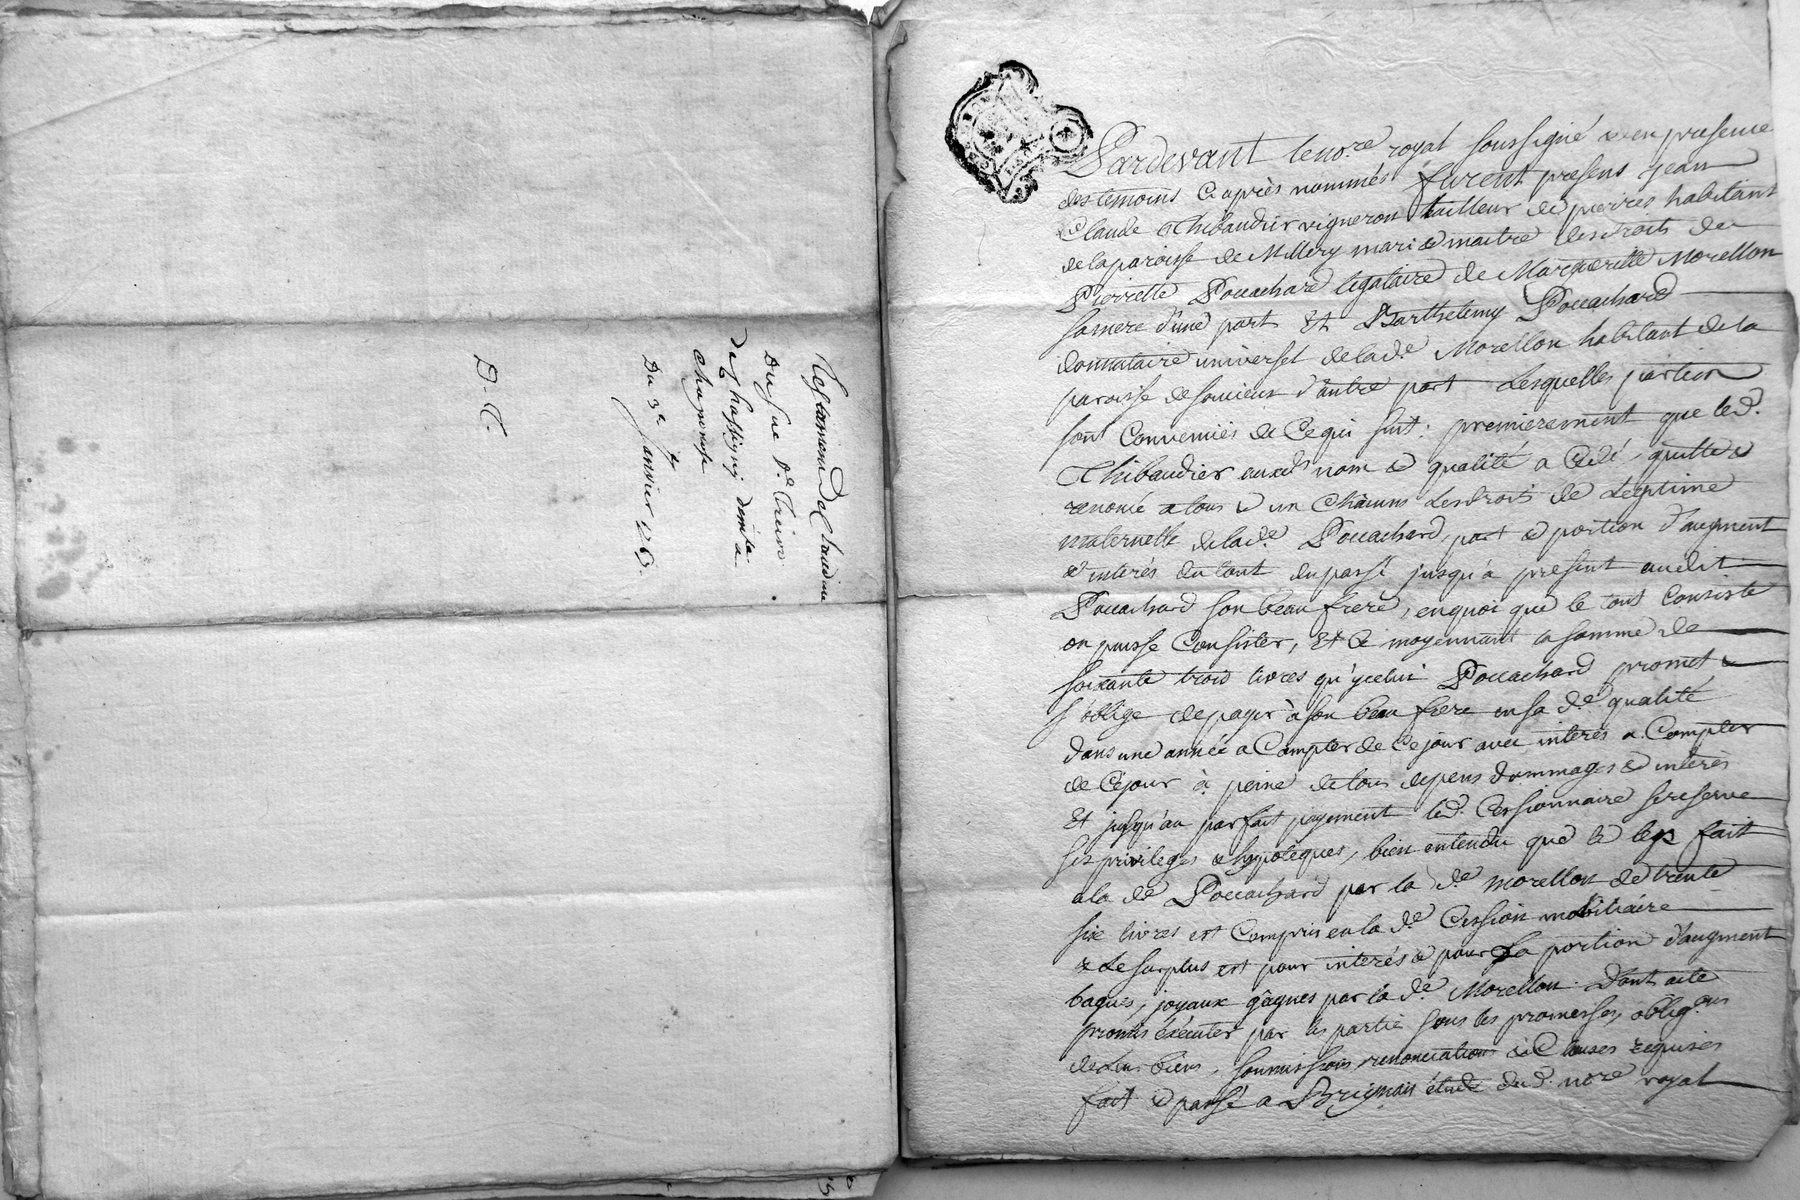 Testament de Claudine
Du sue Dr
de Chassigny dem.t a
chaponost
Du 3e Janvier
D. C.
Pardevant le no.re royal soussigné & en presence
des temoins cy après nommés furent presens Jean
Claude Thibaudier vigneron tailleur de pierres habitant
de la paroisse de Millery mari & maitre des droits de
Pierrette Pouachard legataire de Marguerite Morellon
sa mere d'une part Et Barthelemy Pouachard
donnataire universel de la de. Morellon habitant de la
paroisse de soucieux d'autre part Lesquelles parties
sont Convenües de Ce qui suit: premierement que led.
Thibaudier auxds nom & qualité a Cédé, quitté &
renoncé a tous & un Chacuns Les droits de Legitime
maternelle de lade. Pouachard, part & portion d'augment
& interés du tout du passé jusqu'a present audit
Pouachard son beau frere, en quoi que le tout Consiste
ou puisse Consister, Et Ce moyennant la somme de
soixante trois livres qu'ycelui Pouachard promet &
s'oblige de payer à son beau frere en sa de. qualité
dans une année a Compter de Ce jour avec interés a Compter
de Cejour à peine de tous depens dommages & interès
Et jusqu'au parfait payement led. Cessionnaire se reserve
ses privileges & hypoteques, bien entendu que le legs fait
a la de Pouachard par la de. Morellon de trente
six livres est Compris en la de. Cession mobiliaire
& Le surplus est pour interés & pour La portion d'augment
bagues, joyaux gâgnés par la de. Morellon. Dont acte
promis éxécuter par les partie sous les promesses, oblig.ons
de Leurs biens, soumissions, renonciations & Clauses requises
fait & passé a Brignais étude dud. no.re royal